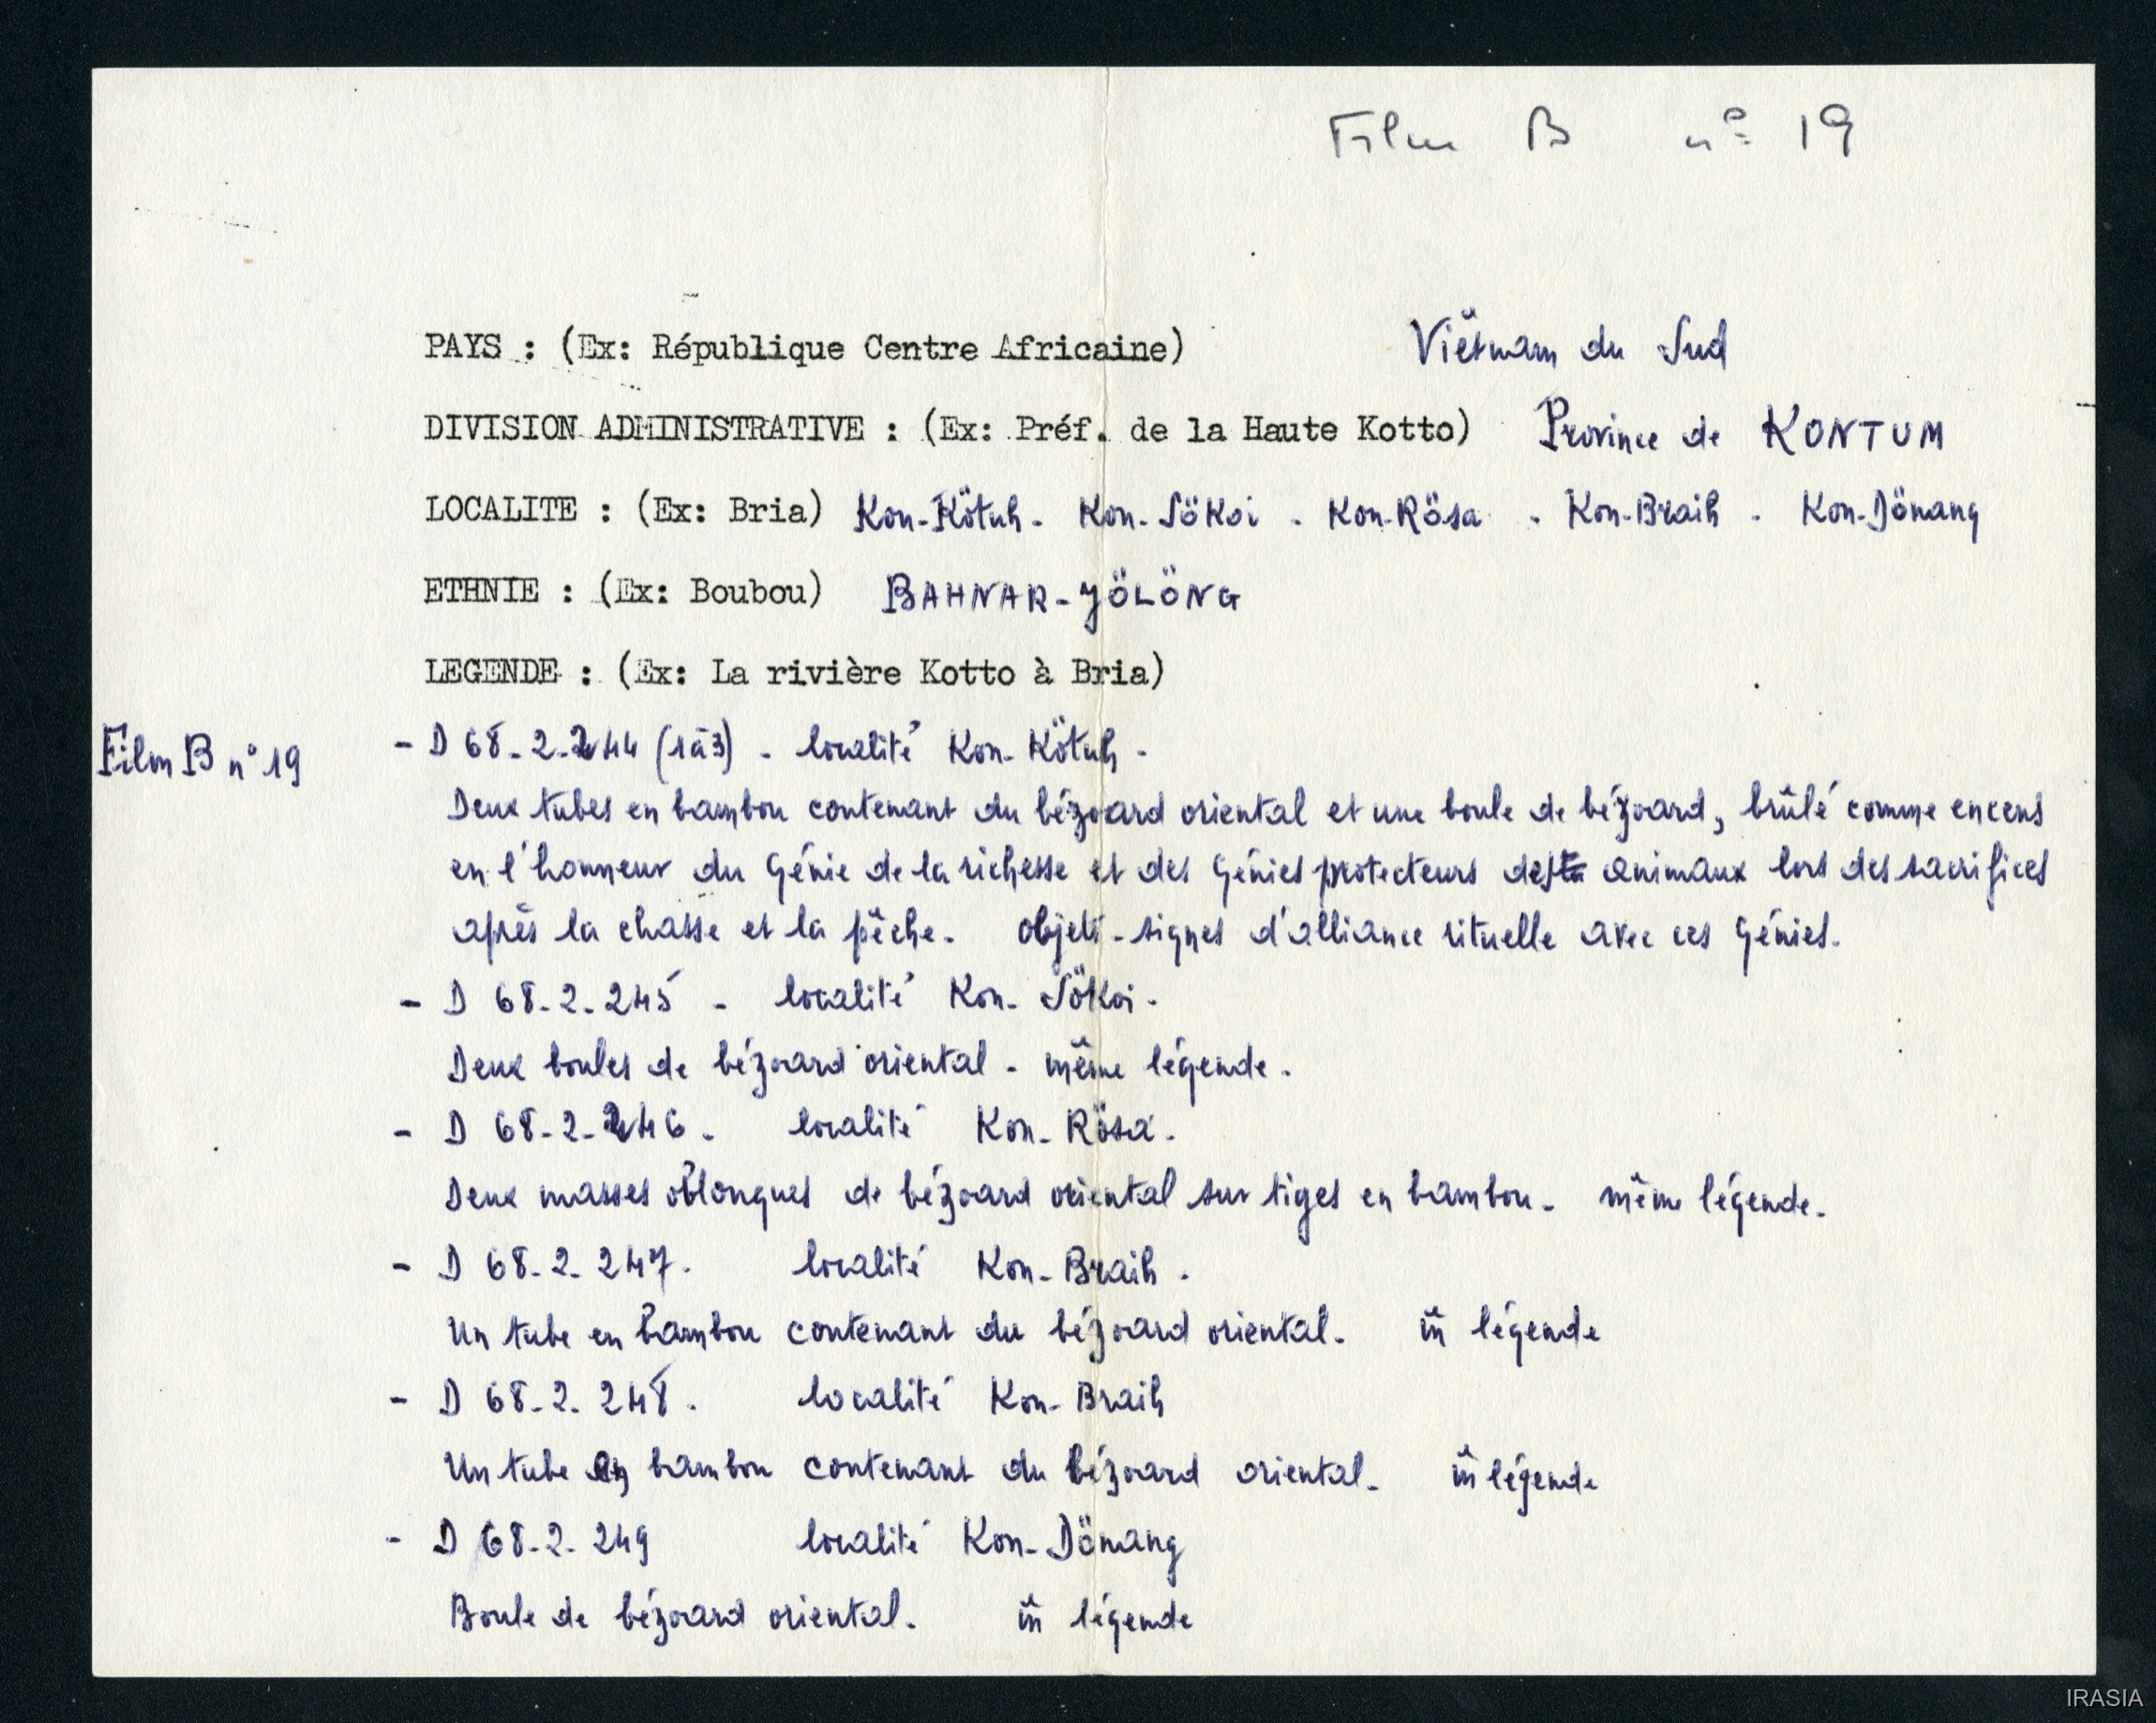 Film B n° 19
PAYS : (Ex: République Centre Africaine) Viêtnam du Sud
DIVISION ADMINISTRATIVE : (Ex: Préf. de la Haute Kotto) Province de KONTUM
LOCALITE : (Ex: Bria) Kon-Kötuh - Kon-Sökoi - Kon-Rösa - Kon-Braih - Kon-Dönang
ETHNIE : (Ex: Boubou) BAHNAR-JÖLÖNG
LEGENDE : (Ex: La rivière Kotto à Bria)
Film B n° 19 - D 68-2-244 (1à3) - localité Kon-Kötuh -
Deux tubes en bambou contenant du bézoard oriental et une boule de bézoard, brûlé comme encens
en l'honneur du Génie de la richesse et des Génies protecteurs des animaux lors des sacrifices
après la chasse et la pêche. objets-signes d'alliance rituelle avec ces Génies.
- D 68-2-245 - localité Kon-Sökoi -
Deux boules de bézoard oriental - même légende.
- D 68-2-246. localité Kon-Rösa.
Deux masses oblongues de bézoard oriental sur tiges en bambou. même légende.
- D 68-2-247. localité Kon-Braih.
Un tube en bambou contenant du bézoard oriental. m̂ légende
- D 68-2-248. localité Kon-Braih
Un tube en bambou contenant du bézoard oriental. m̂ légende
- D 68-2-249 localité Kon-Dönang
Boule de bézoard oriental. m̂ légende
IRASIA